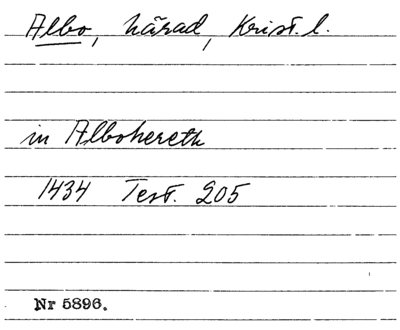 Albo, härad, Krist. l.
in Albohereth
1434 Test. 205
Nr 5896.